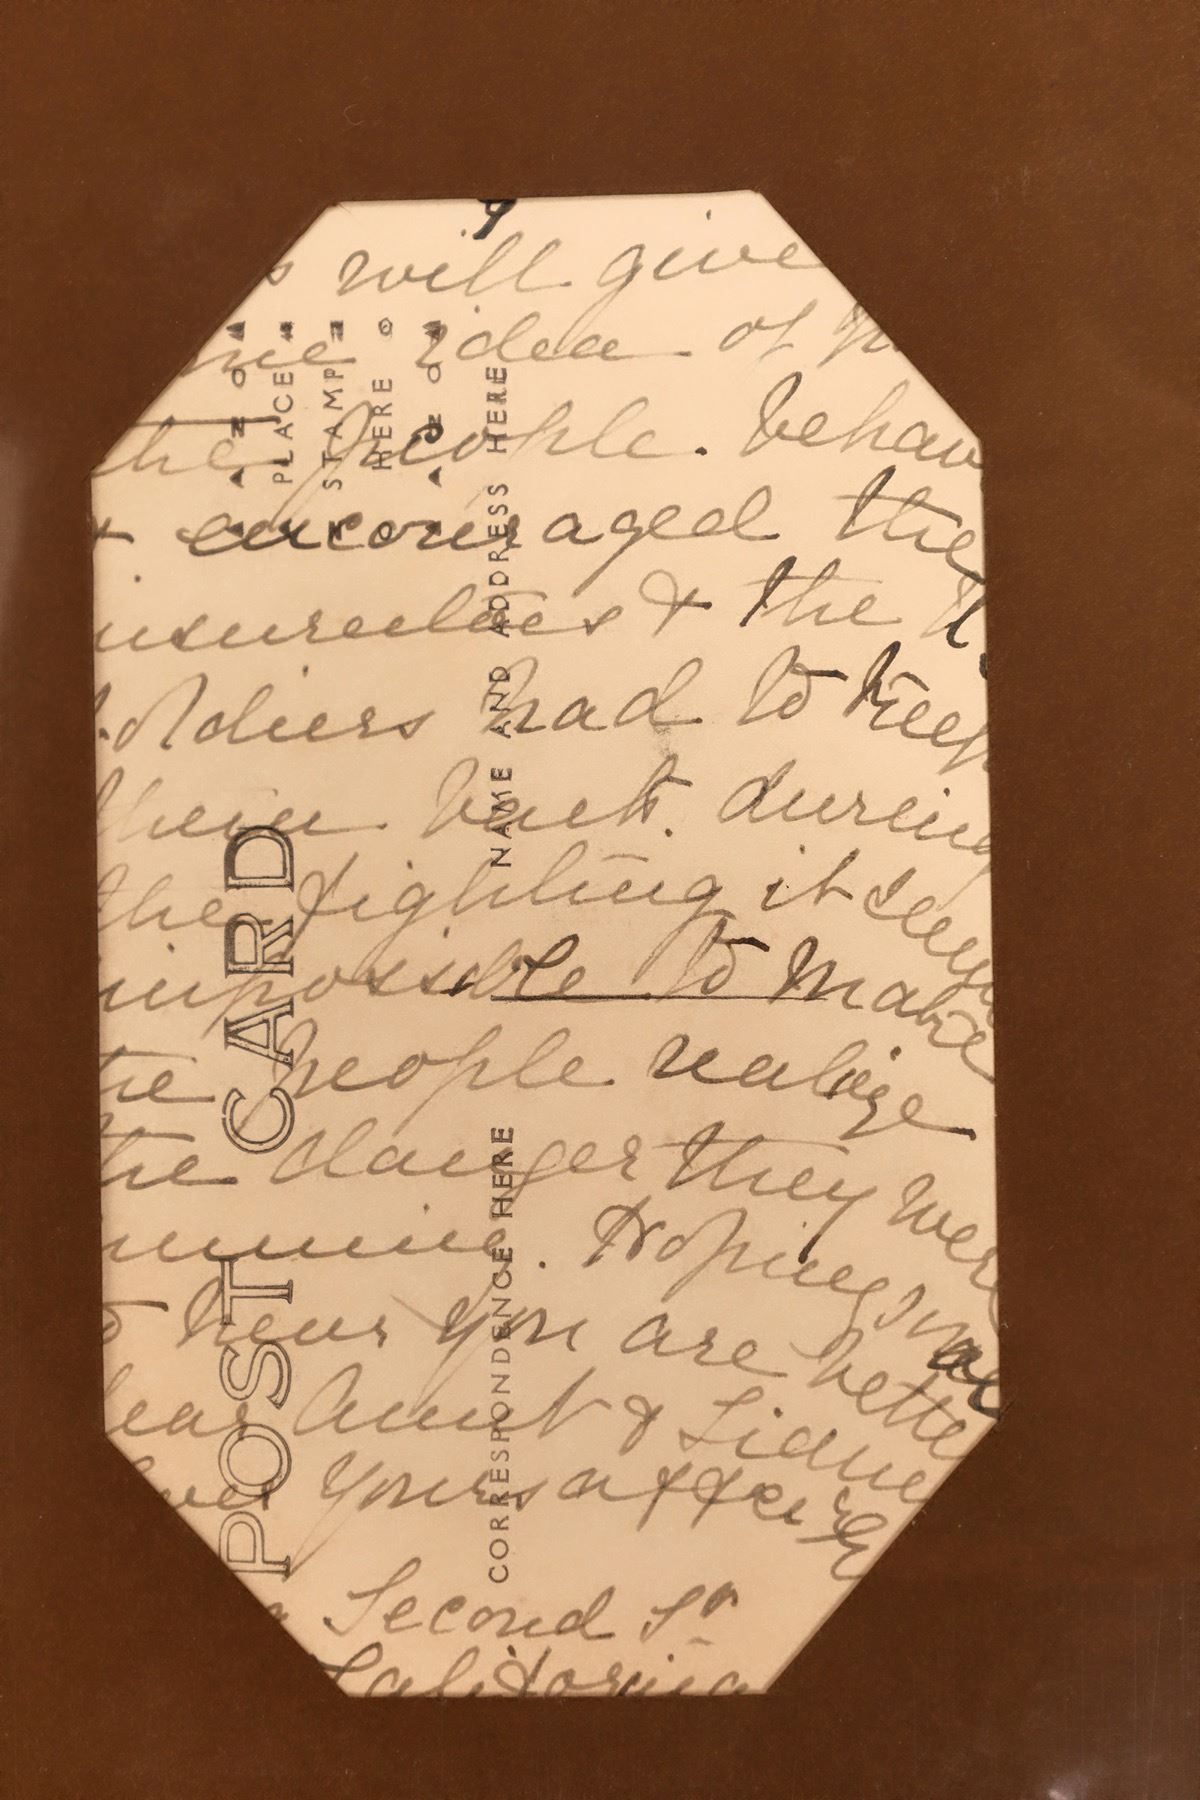 will give
idea of
the people. behav
& encouraged the
insurectoes & the U.
soldiers had to keep
them back. during
the fighting it seems
impossible to make
the people realize
the danger they were
running. Hoping
to hear you are better
dear Aunt &
love yours affec
Second St
California
POST CARD
PLACE
STAMP
HERE
NAME AND ADDRESS HERE
CORRESPONDENCE HERE